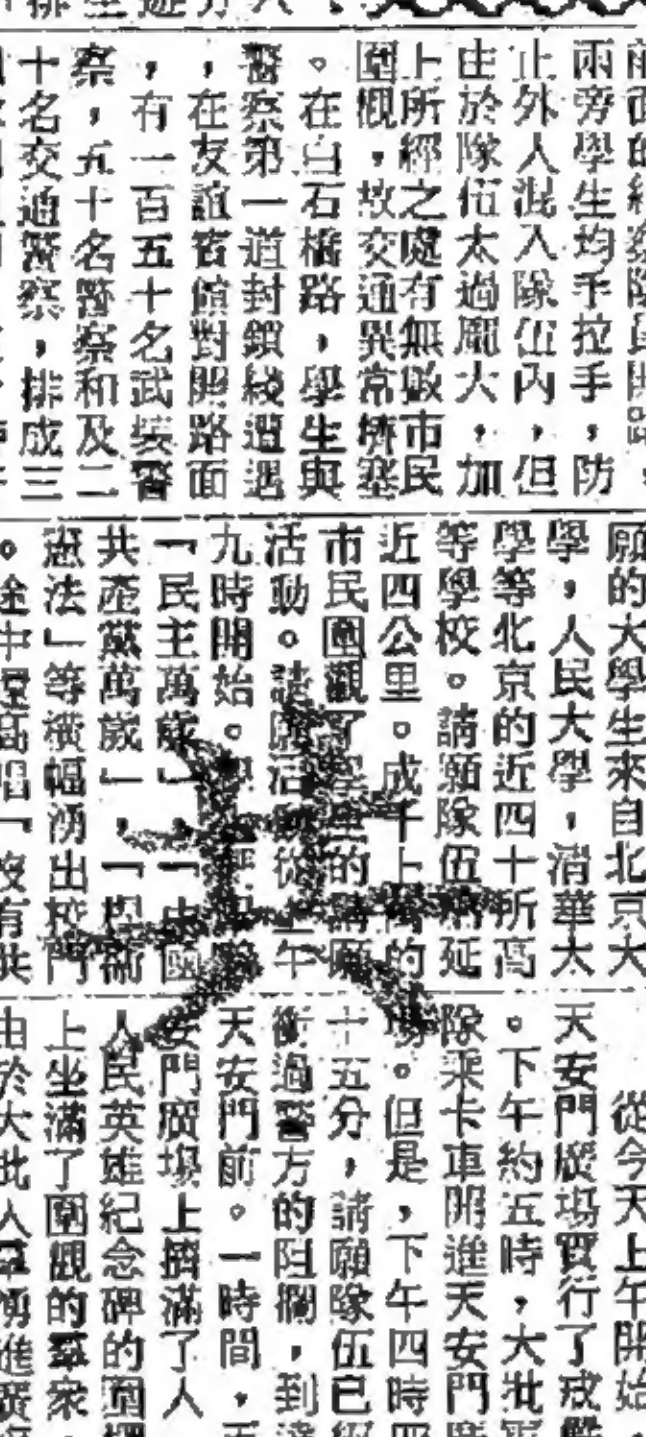 兩旁學生均手拉手，防
止外人混入隊伍內，但
由於隊伍太過龐大，加
上所經之處有無數市民
圍觀，故交通異常擠塞
。在白石橋路，學生與
警察第一道封鎖綫遭遇
，在友誼賓館對開路面
，有一百五十名武裝警
察，五十名警察和及二
十名交通警察，排成三
願的大學生來自北京大
學，人民大學，清華大
學等北京的近四十所高
等學校。請願隊伍綿延
近四公里。成千上萬的
市民圍觀了學生的請願
活動。請願活動從上午
九時開始。
「民主萬歲」，「中國
共產黨萬歲」，「
憲法」等橫幅湧出校門
。途中還高唱「沒有共
從今天上午開始，
天安門廣場實行了戒嚴
。下午約五時，大批軍
隊乘卡車開進天安門廣
場。但是，下午四時四
十五分，請願隊伍已經
衝過警方的阻攔，到達
天安門前。一時間，天
安門廣場上擠滿了人
人民英雄紀念碑的圍欄
上坐滿了圍觀的羣衆，
由於大批人羣湧進廣